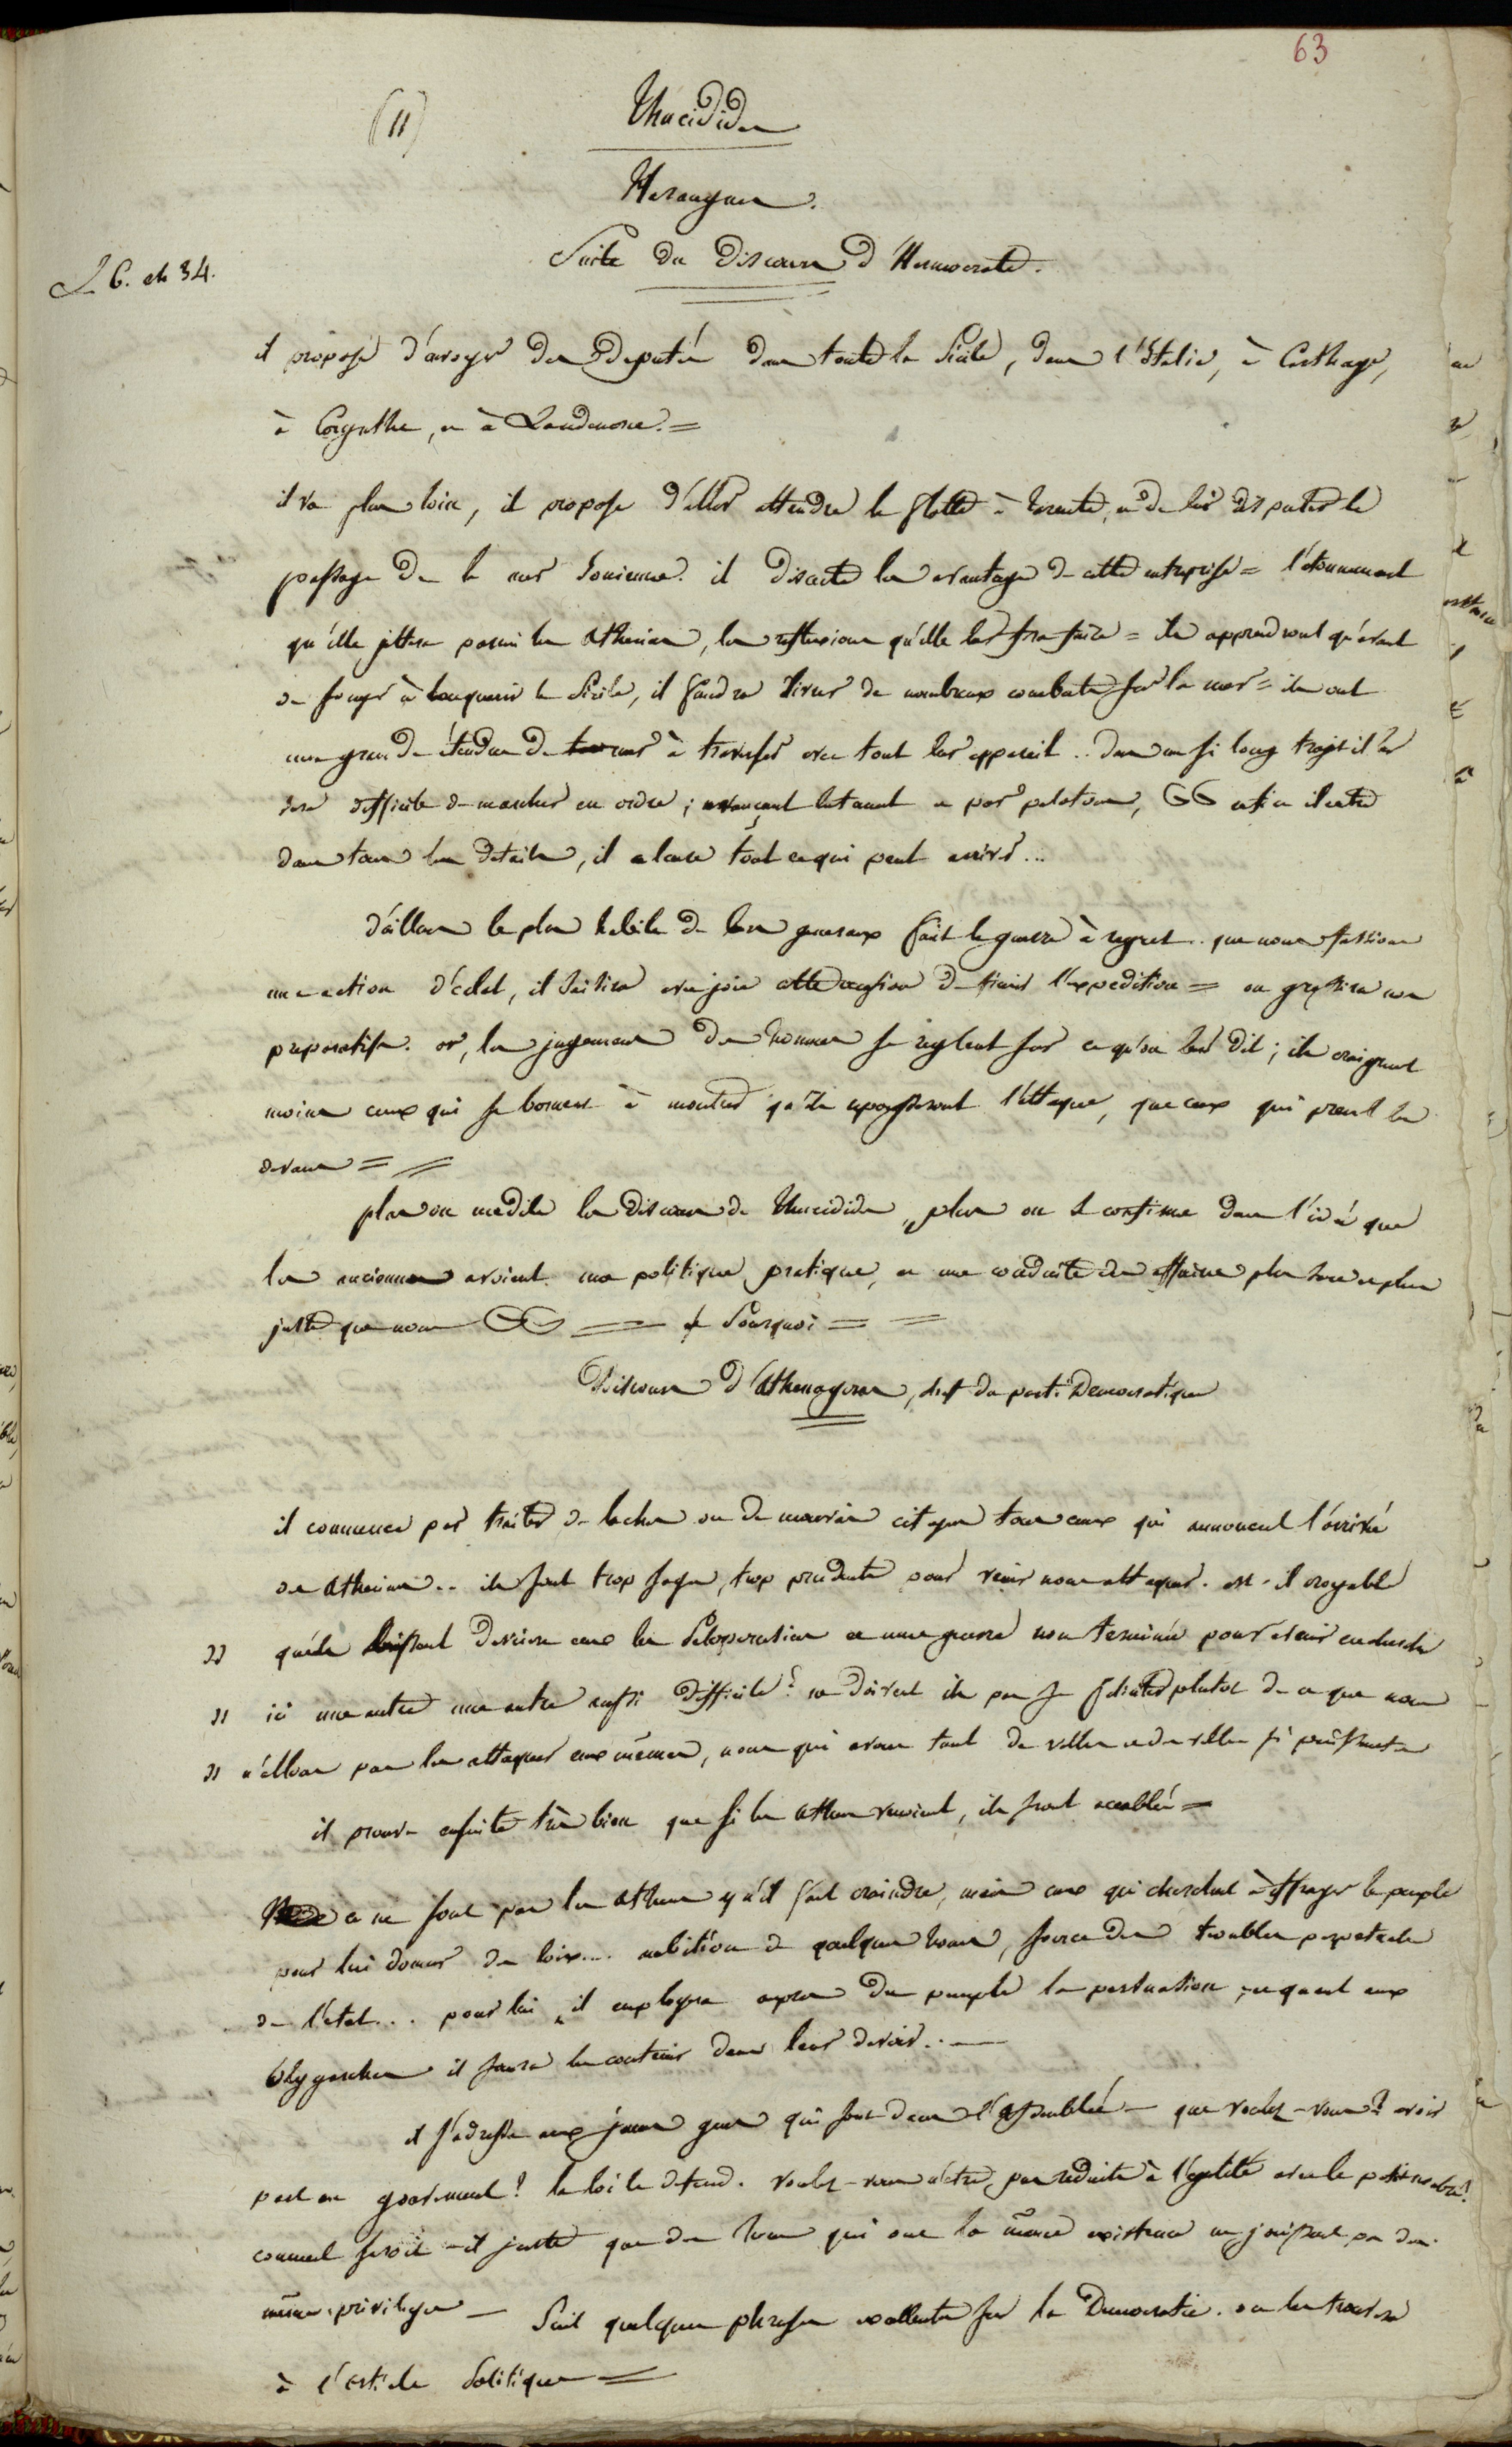 63
(11)
Thucidides
Harangues.
Suite du Discours d'Hermocrate.
L 6. ch 34.
il propose d'envoyer des deputés dans toute la Sicile, dans l'Italie, à Carthage,
à Corynthe, et à Lacedemone. =
il va plus loin, il propose d'aller attendre la flotte à Tarente, et de lui disputer le
passage de la mer Ionienne. il discute les avantages de cette entreprise = l'étonnement
qu'elle jettera parmi les Atheniens, les reflexions qu'elle leur fera faire = ils apprendront qu'avant
de songer à conquerir la Sicile, il faudra livrer de nombreux combats sur la mer = ils ont
une grande étendue de mer à traverser avec tout leur appareil .. dans un si long trajet il leur
sera difficile de marcher en ordre ; avançant lentement et par pelotons, enfin il entre
dans tous les details, il a tout ce qui peut arriver ...
d'ailleurs le plus habile de leurs generaux fait la guerre à regret. que nous fassions
une action d'éclat, il saisira avec joie cette occasion de finir l'expedition = on grossira nos
preparatifs. or, les jugemens des hommes se reglent sur ce qu'on leur dit ; ils craignent
moins ceux qui se bornent à montrer qu'ils repousseront l'attaque, que ceux qui prennent les
devans = =
plus on medite les discours de Thucidides, plus on se confirme dans l'idée que
les anciens avoient une politique pratique, et une conduite des affaires plus sure et plus
juste que nous = et Pourquoi = =
Discours d'Athenagoras, chef du parti Democratique
il commence par traiter de laches ou de mauvais citoyens tous ceux qui annoncent l'arrivée
des Atheniens .. ils sont trop sages, trop prudents pour venir nous attaquer. est-il croyable
" qu'ils laissent derriere eux les Peloponesiens et une guerre non terminée pour venir en chercher
" ici une autre une autre aussi difficile ? ne doivent ils pas se feliciter plutot de ce que nous
" n'allons pas les attaquer eux mêmes, nous qui avons tant de villes et de villes si puissantes
il prouve ensuite très bien que si les Athen viennent, ils seront accablés =
ce ne sont pas les Athen qu'il faut craindre, mais ceux qui cherchent à effrayer le peuple
pour lui donner des loix.... ambition de quelques homes, source des troubles perpetuels
de l'etat... pour lui, il employra aupres du peuple la persuasion ; et quant aux
Olygarches il saura les contenir dans leur devoir. . —
il s'adresse aux jeunes gens qui sont dans l'assemblée — que voulez-vous ? avoir
part au gouvernement ? la loi le defend. voulez-vous n'être pas reduits à l'egalité avec le petit nombre ?
comment seroit-il juste que des homes qui ont la même existence ne jouissent pas des
mêmes privileges — Suit quelques phrases excellentes sur la Democratie. on les trouvera
à l'article Politique =